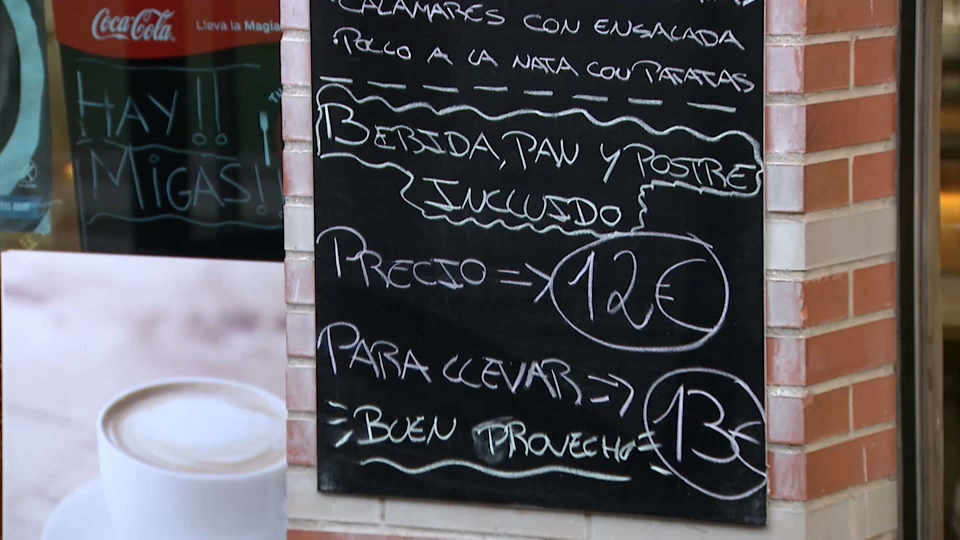 Coca-Cola
Lleva la Magia
HAY!!
MIGAS!!
CALAMARES CON ENSALADA
·POLLO A LA NATA CON PATATAS
BEBIDA, PAN Y POSTRE
INCLUIDO
PRECIO => 12€
PARA LLEVAR => 13€
BUEN PROVECHO